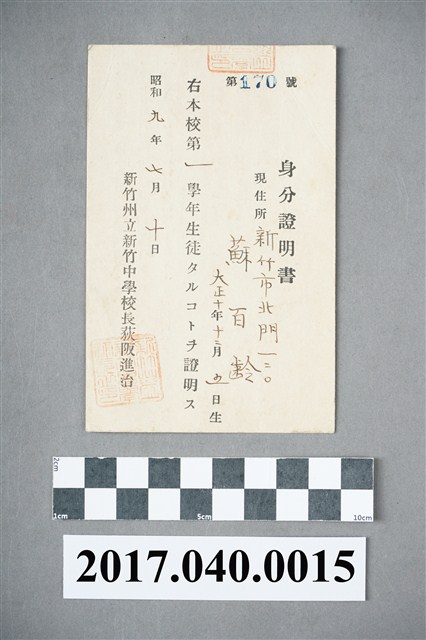 第170號
身分證明書
現住所 新竹市北門一三〇
蘇百齡
大正十年十二月五日生
右本校第一學年生徒タルコトヲ證明ス
昭和九年七月十日
新竹州立新竹中學校長荻阪進治
2cm
1cm 5cm 10cm
2017.040.0015